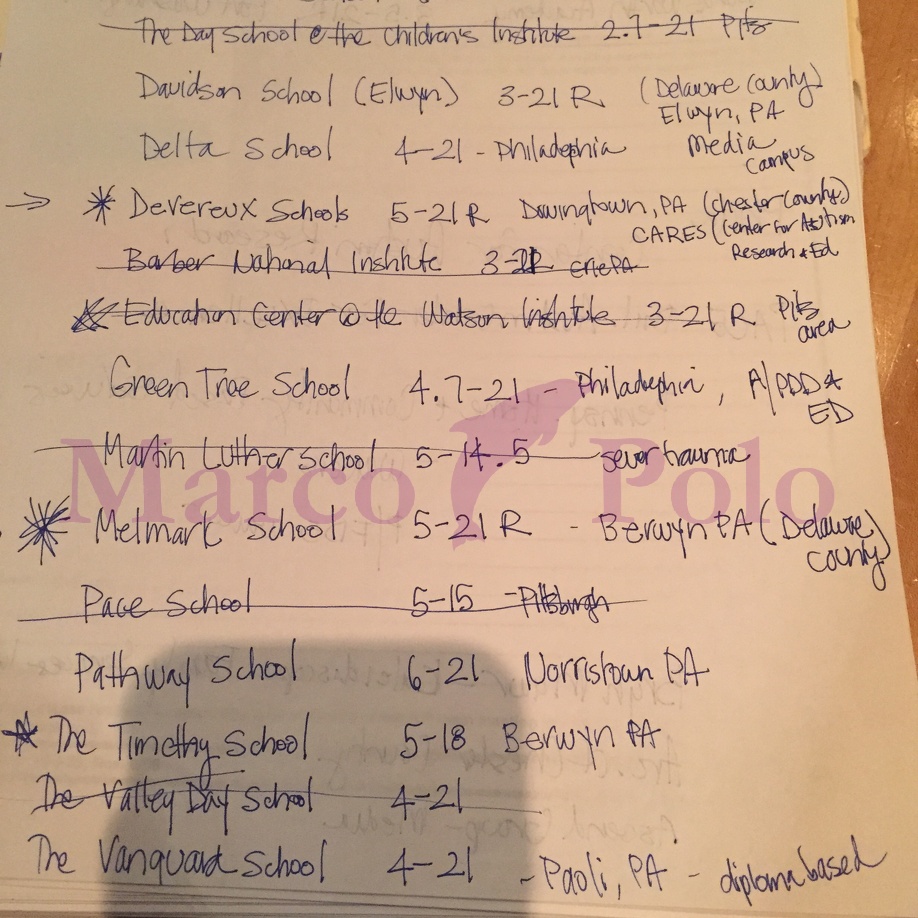 The Day School @ the Children's Institute 2.7-21 Pitts
Davidson School (Elwyn) 3-21 R (Delaware County)
Elwyn, PA
Delta School 4-21 - Philadephia Media
Campus
→ * Devereux Schools 5-21 R Downingtown, PA (Chester County)
CARES (Center for Autism
Research + Ed
Barber National Institute 3-21 R erie PA
* Education Center @ the Watson Institute 3-21 R Pitts
area
Green Tree School 4.7-21 - Philadephia, A/PDD &
ED
Martin Luther School 5-14.5 sever trauma
Marco Polo
* Melmark School 5-21 R - Berwyn PA (Delaware
County)
Pace School 5-15 - Pittsburgh
Pathway School 6-21 Norristown PA
* The Timothy School 5-18 Berwyn PA
The Valley Day School 4-21
The Vanguard School 4-21 - Paoli, PA - diploma based